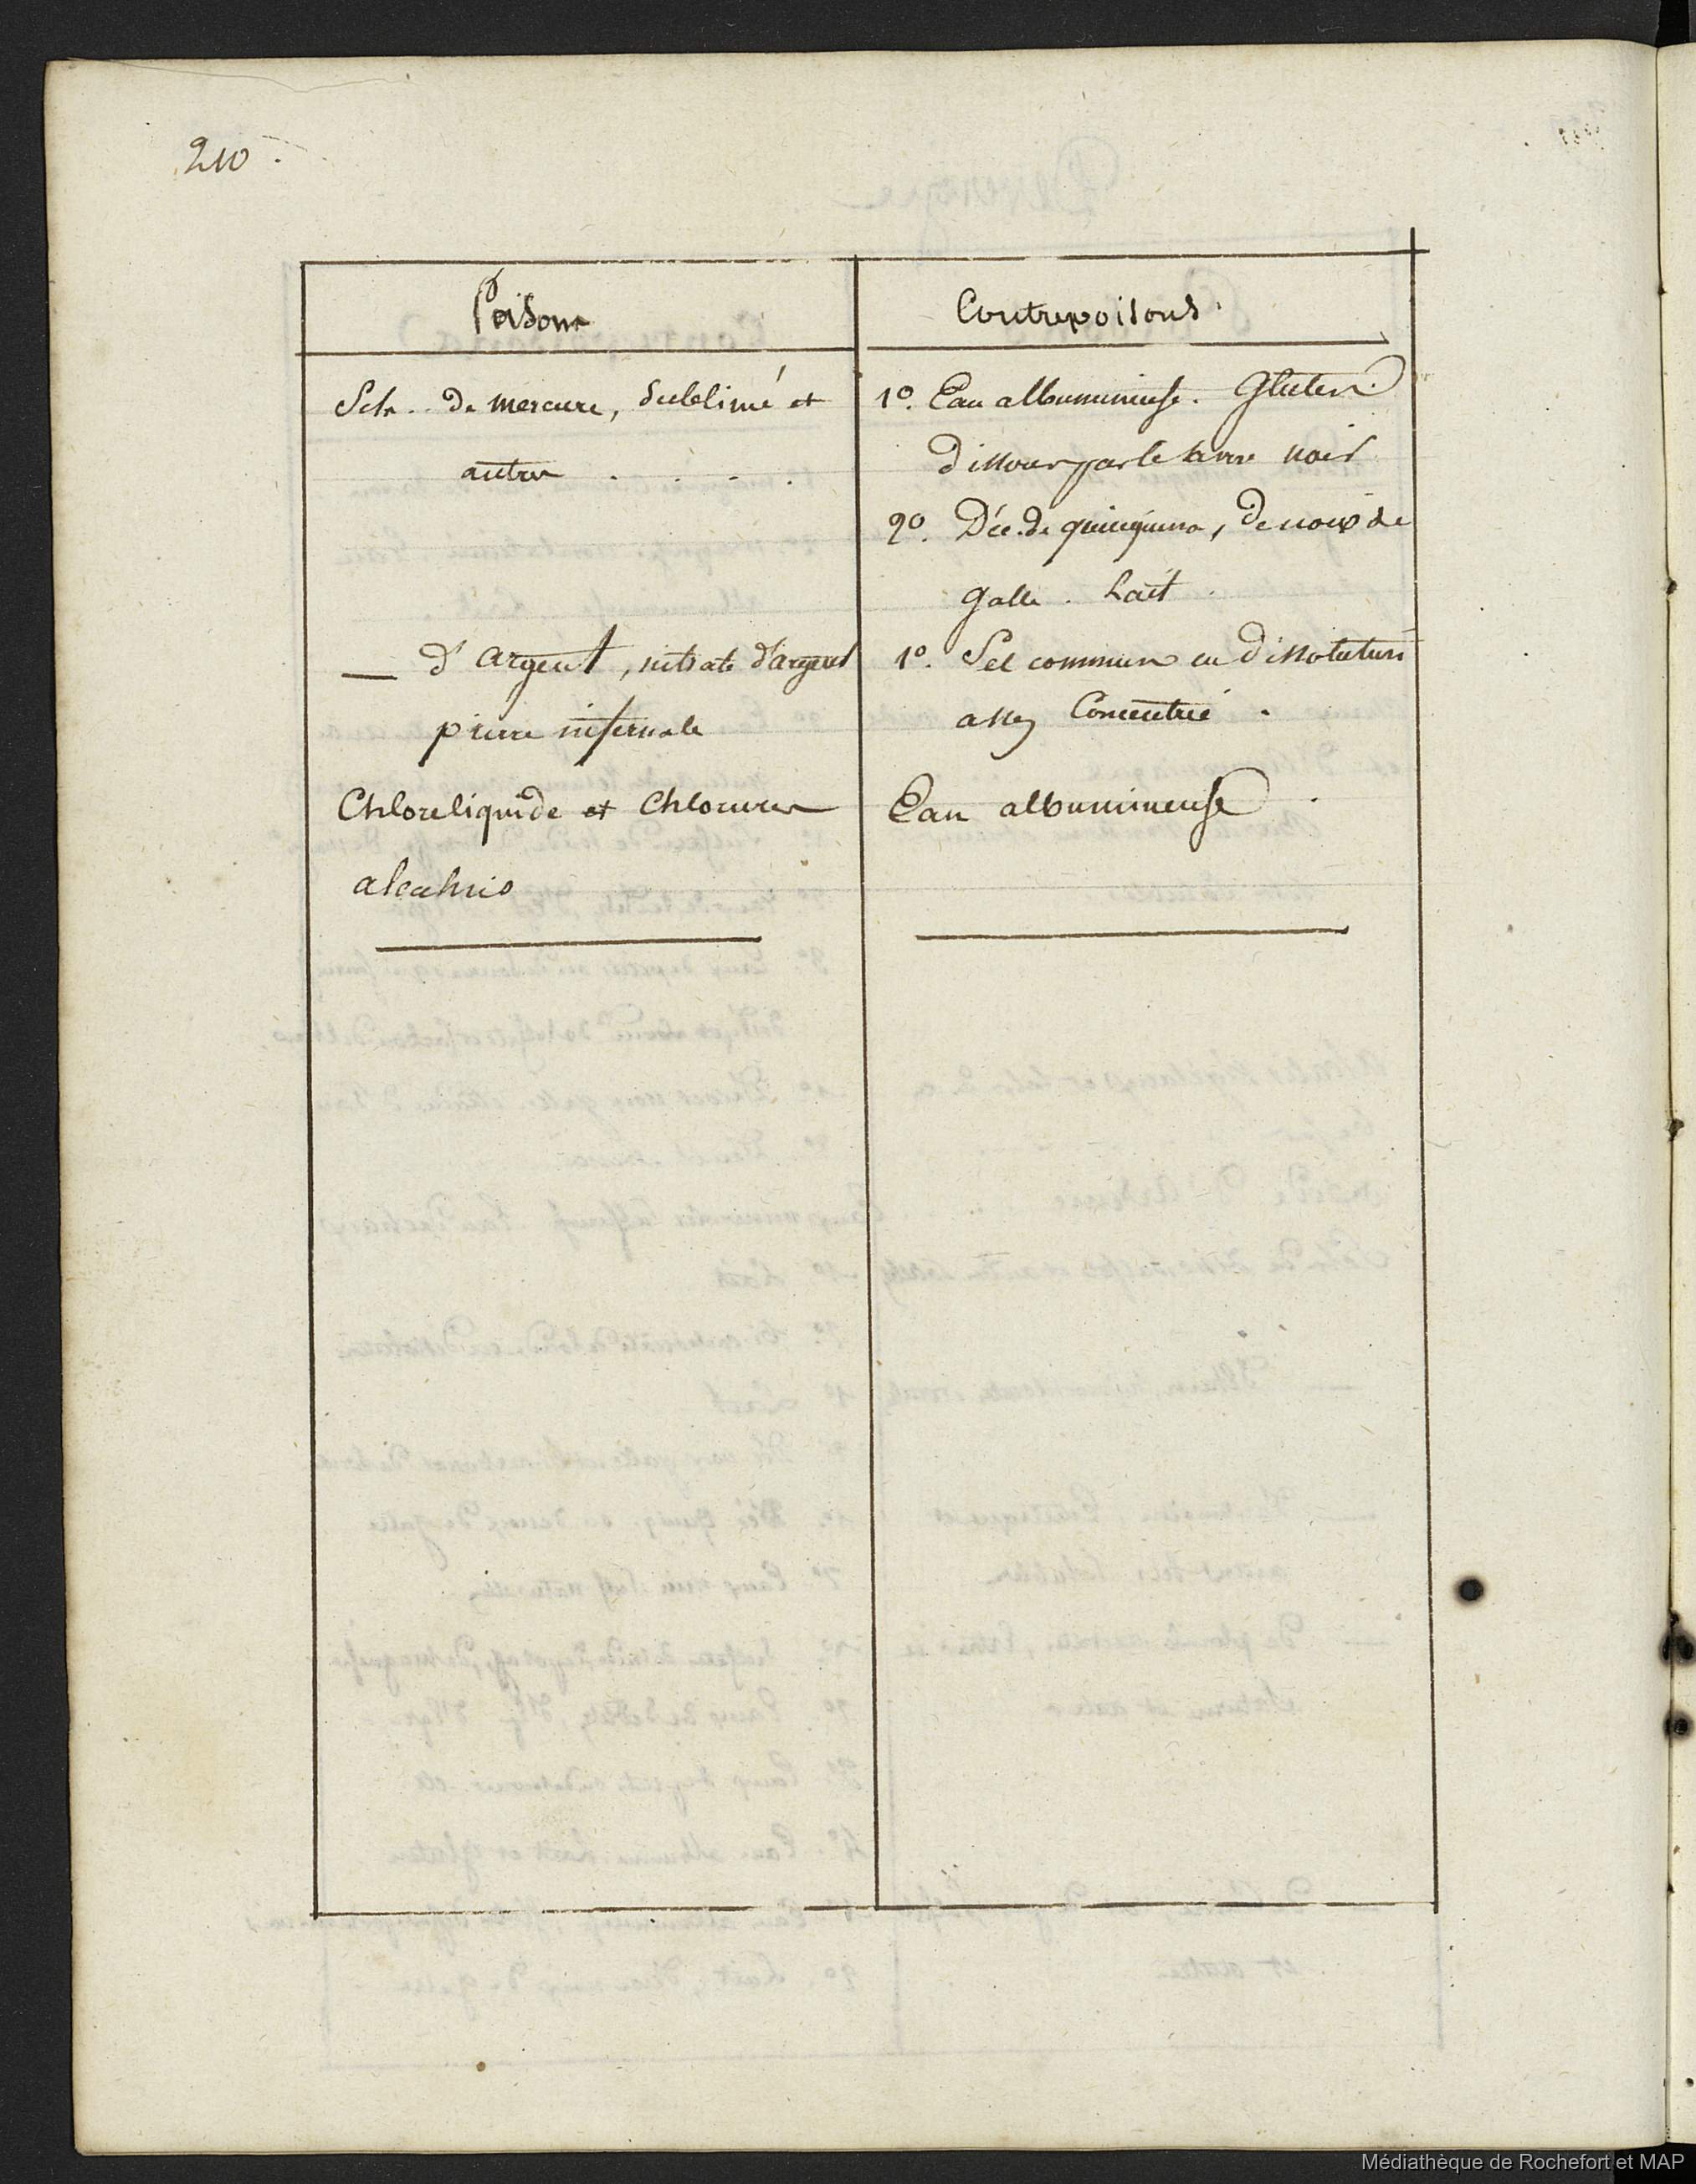 210.
Poisons
Contrepoisons
Sels de mercure, Sublimé et
autres . . . .
1º. Eau albumineuse. Gluten
dissous par le savon noir
2º. Déc. de quinquina, de noix de
galle. Lait.
— d'argent, nitrate d'argent
pierre infernale
1º. Sel commun en dissolution
assez Concentrée.
Chlore liquide et Chlorures
alcalins
Eau albumineuse.
Médiathèque de Rochefort et MAP